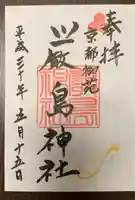 奉拝
京都御苑
厳島神社
平成三十年五月十五日